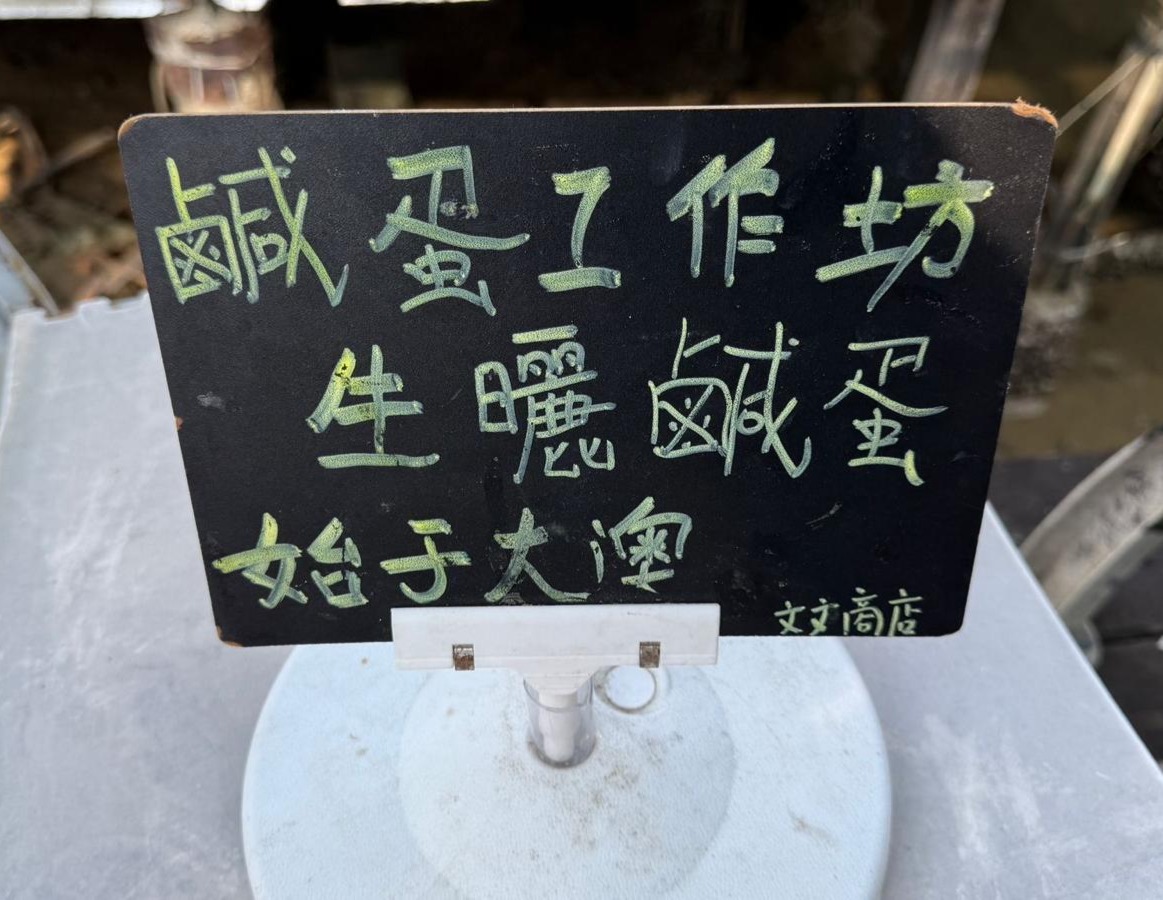 鹹蛋工作坊
生曬鹹蛋
始于大澳
文文商店